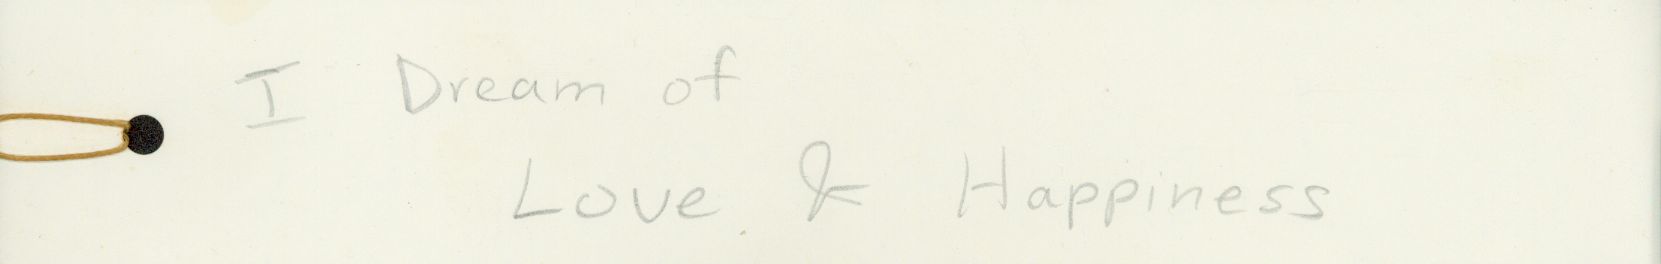 I Dream of
Love & Happiness